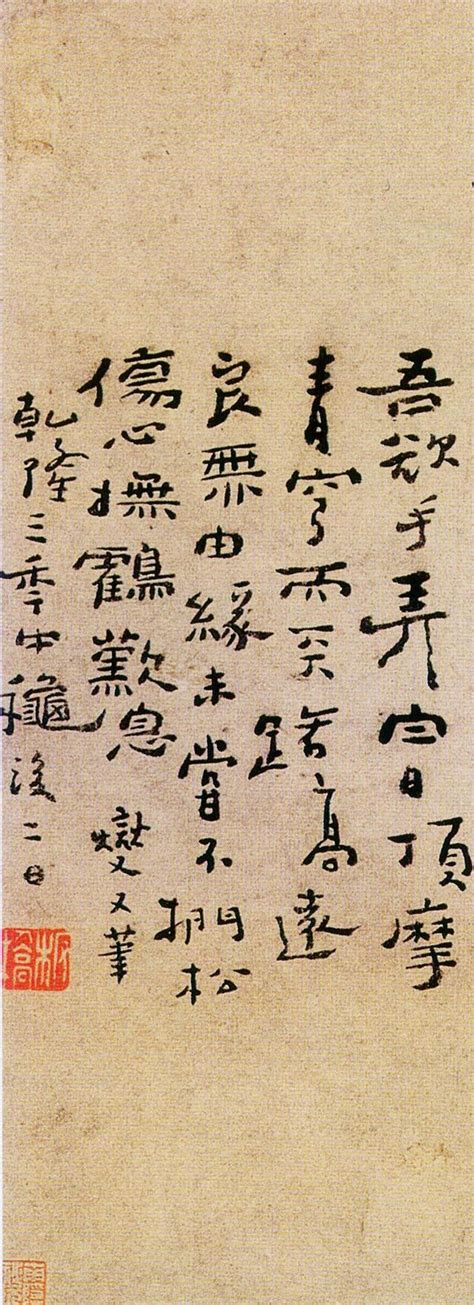 吾欲手弄白日頂摩
青穹而天路高遠
良無由緣未嘗不捫松
傷心撫鶴歎息 燮又筆
乾隆三秊中龝後二日
板橋